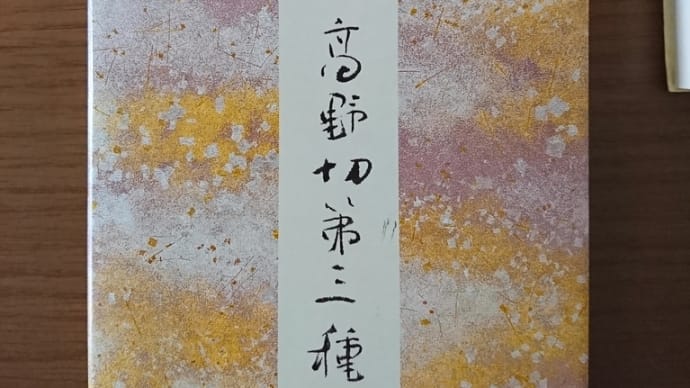 高野切第三種